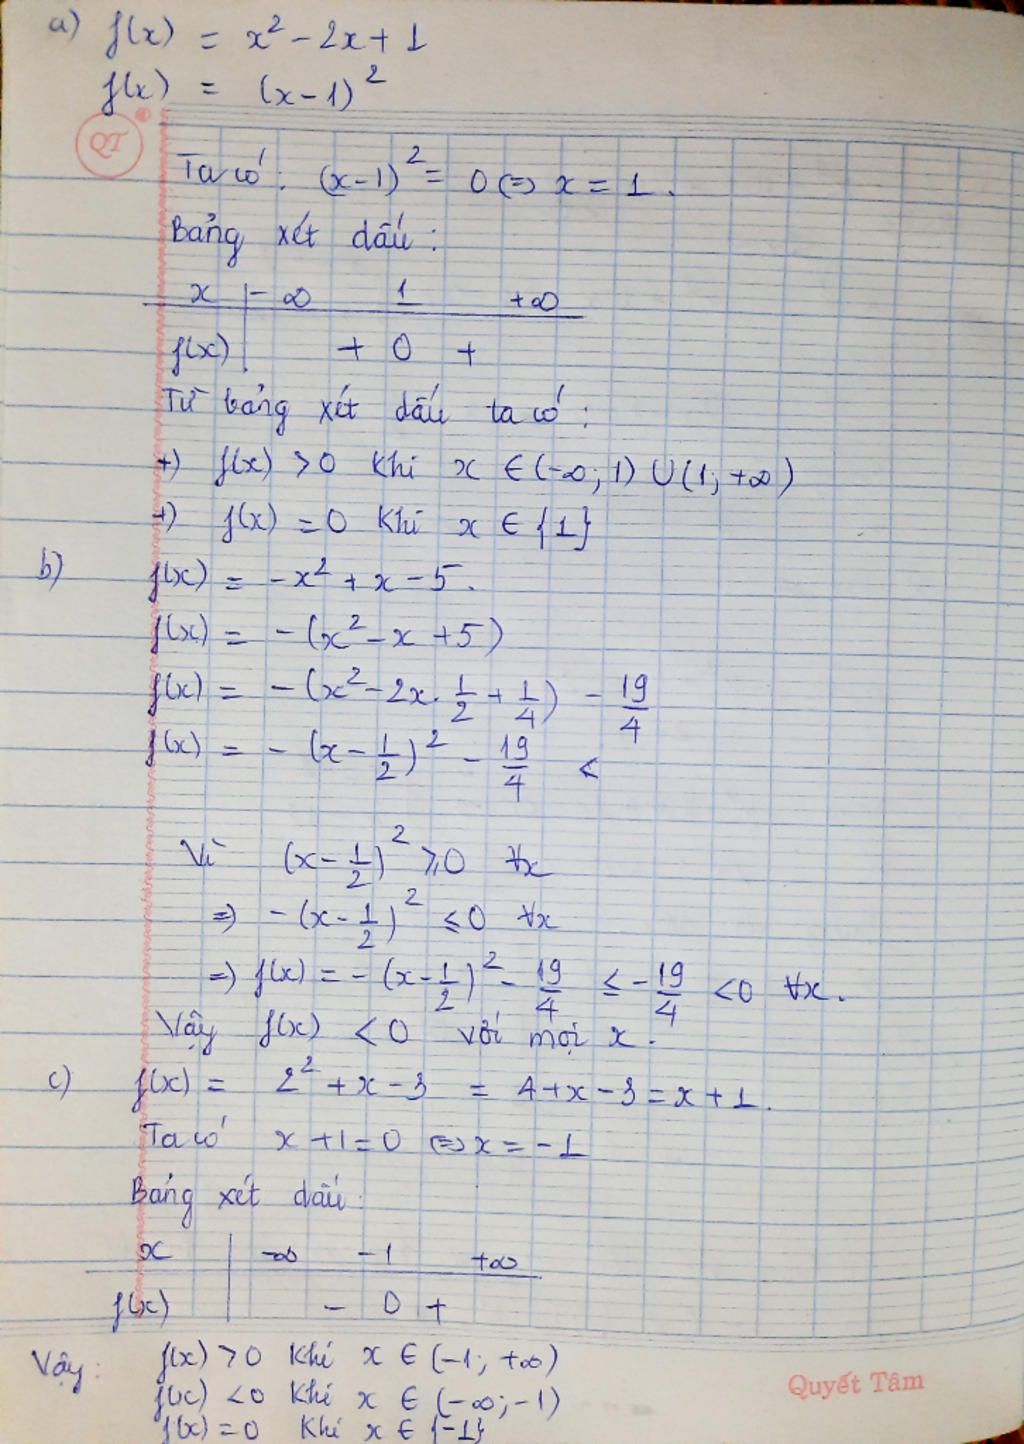 a) f(x) = x² - 2x + 1
f(x) = (x-1)²
QT
Ta có: (x-1)² = 0 (=) x = 1.
Bảng xét dấu:
x | -∞ 1 +∞
f(x) | + 0 +
Từ bảng xét dấu ta có:
+) f(x) > 0 khi x ∈ (-∞; 1) ∪ (1; +∞)
+) f(x) = 0 khi x ∈ {1}
b) f(x) = -x² + x - 5.
f(x) = -(x² - x + 5)
f(x) = -(x² - 2x. 1/2 + 1/4) - 19/4
f(x) = -(x - 1/2)² - 19/4 <
Vì (x - 1/2)² ≥ 0 ∀x
=) -(x - 1/2)² ≤ 0 ∀x
=) f(x) = -(x - 1/2)² - 19/4 ≤ -19/4 < 0 ∀x.
Vậy f(x) < 0 với mọi x.
c) f(x) = 2² + x - 3 = 4 + x - 3 = x + 1.
Ta có x + 1 = 0 (=) x = -1
Bảng xét dấu:
x | -∞ -1 +∞
f(x) | - 0 +
Vậy: f(x) > 0 khi x ∈ (-1; +∞)
f(x) < 0 khi x ∈ (-∞; -1)
f(x) = 0 khi x ∈ {-1}
Quyết Tâm